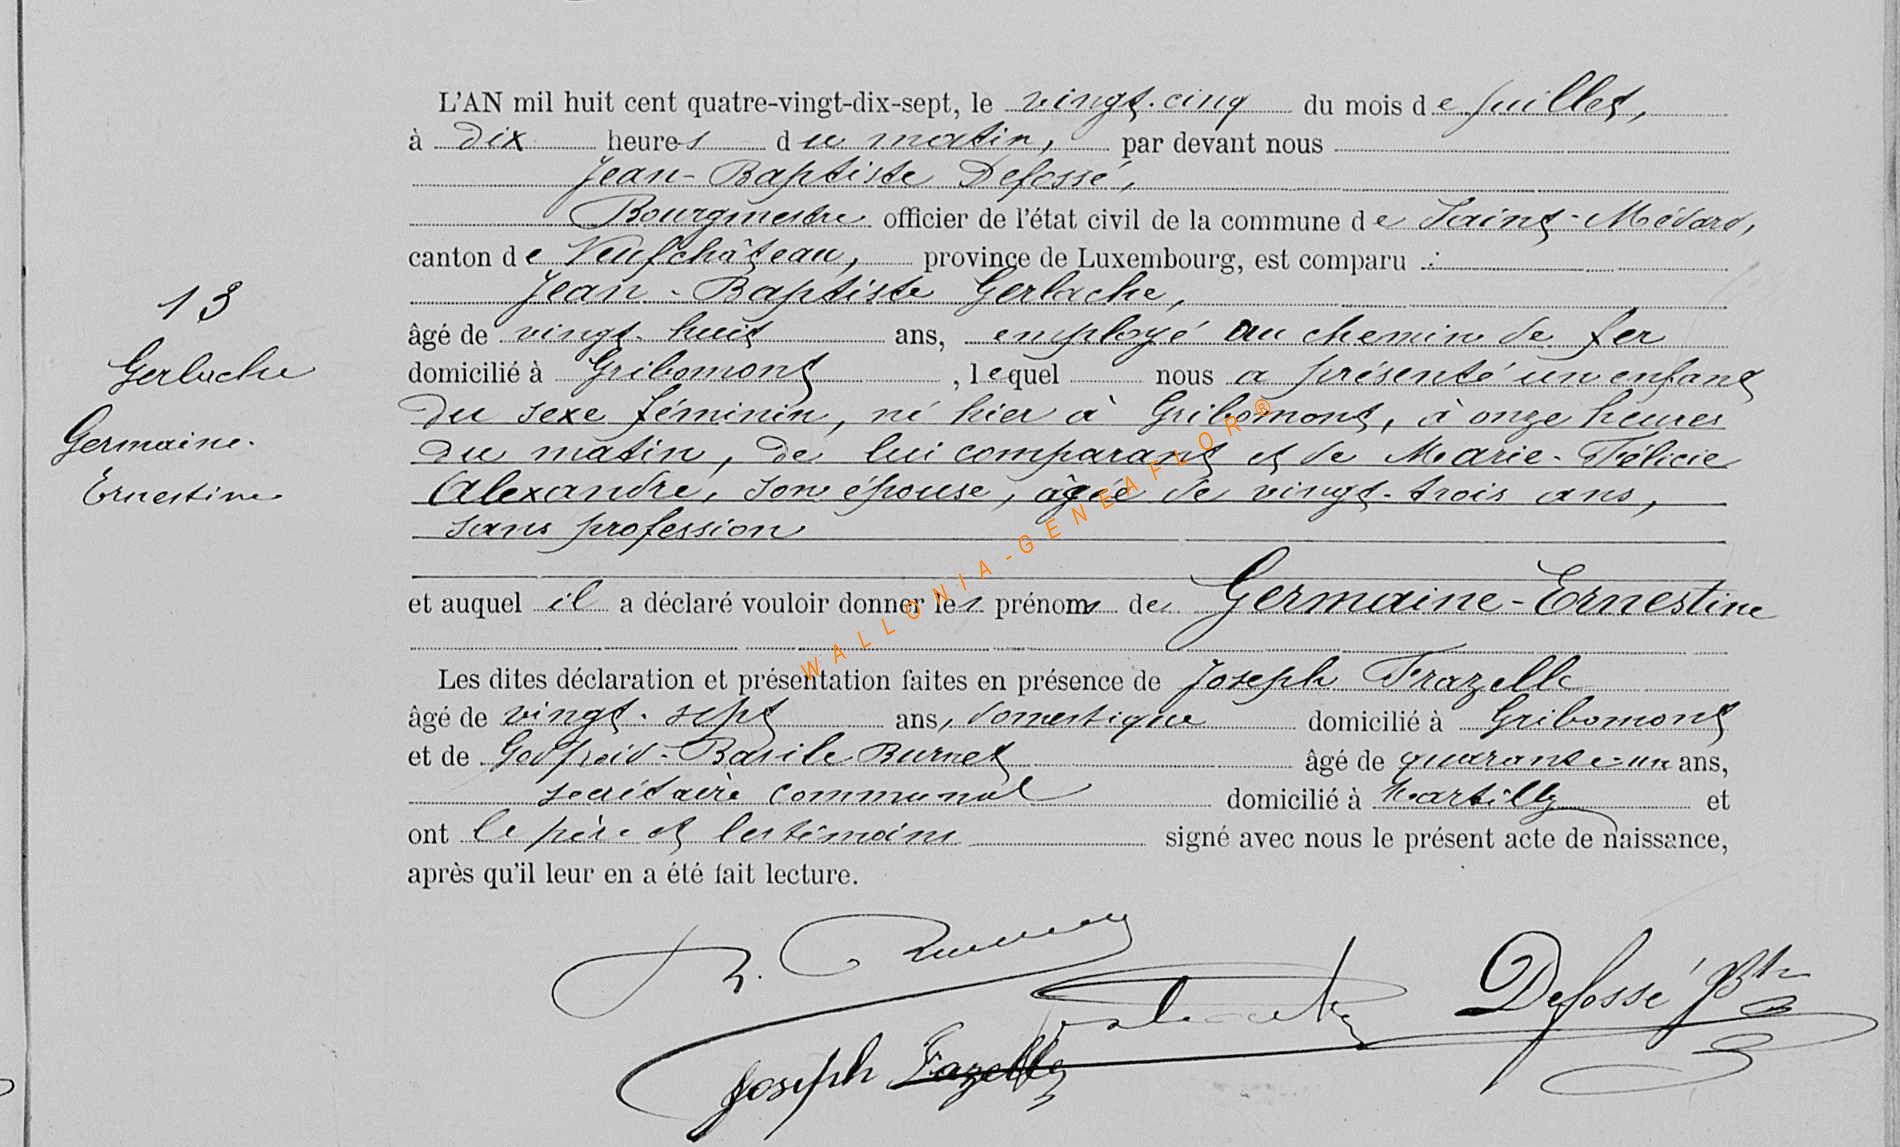 L'AN mil huit cent quatre-vingt-dix-sept, le vingt-cinq du mois de juillet,
à dix heures du matin, par devant nous
Jean-Baptiste Defossé,
Bourgmestre officier de l'état civil de la commune de Saint-Médard,
canton de Neufchâteau, province de Luxembourg, est comparu :
Jean-Baptiste Gerlache,
âgé de vingt-huit ans, employé au chemin de fer
domicilié à Gribomont, lequel nous a présenté un enfant
du sexe féminin, né hier à Gribomont, à onze heures
du matin, de lui comparant et de Marie-Félicie
Alexandre, son épouse, âgée de vingt-trois ans,
sans profession
et auquel il a déclaré vouloir donner les prénoms de Germaine-Ernestine
Les dites déclaration et présentation faites en présence de Joseph Frazelle
âgé de vingt-sept ans, domestique domicilié à Gribomont
et de Godfroid-Basile Burnet âgé de quarante-un ans,
secrétaire communal domicilié à Martilly et
ont le père et les témoins signé avec nous le présent acte de naissance,
après qu'il leur en a été fait lecture.
13
Gerlache
Germaine-
Ernestine
WALLONIA-GENEAFLOR®
Defossé JBte
Joseph Frazelle